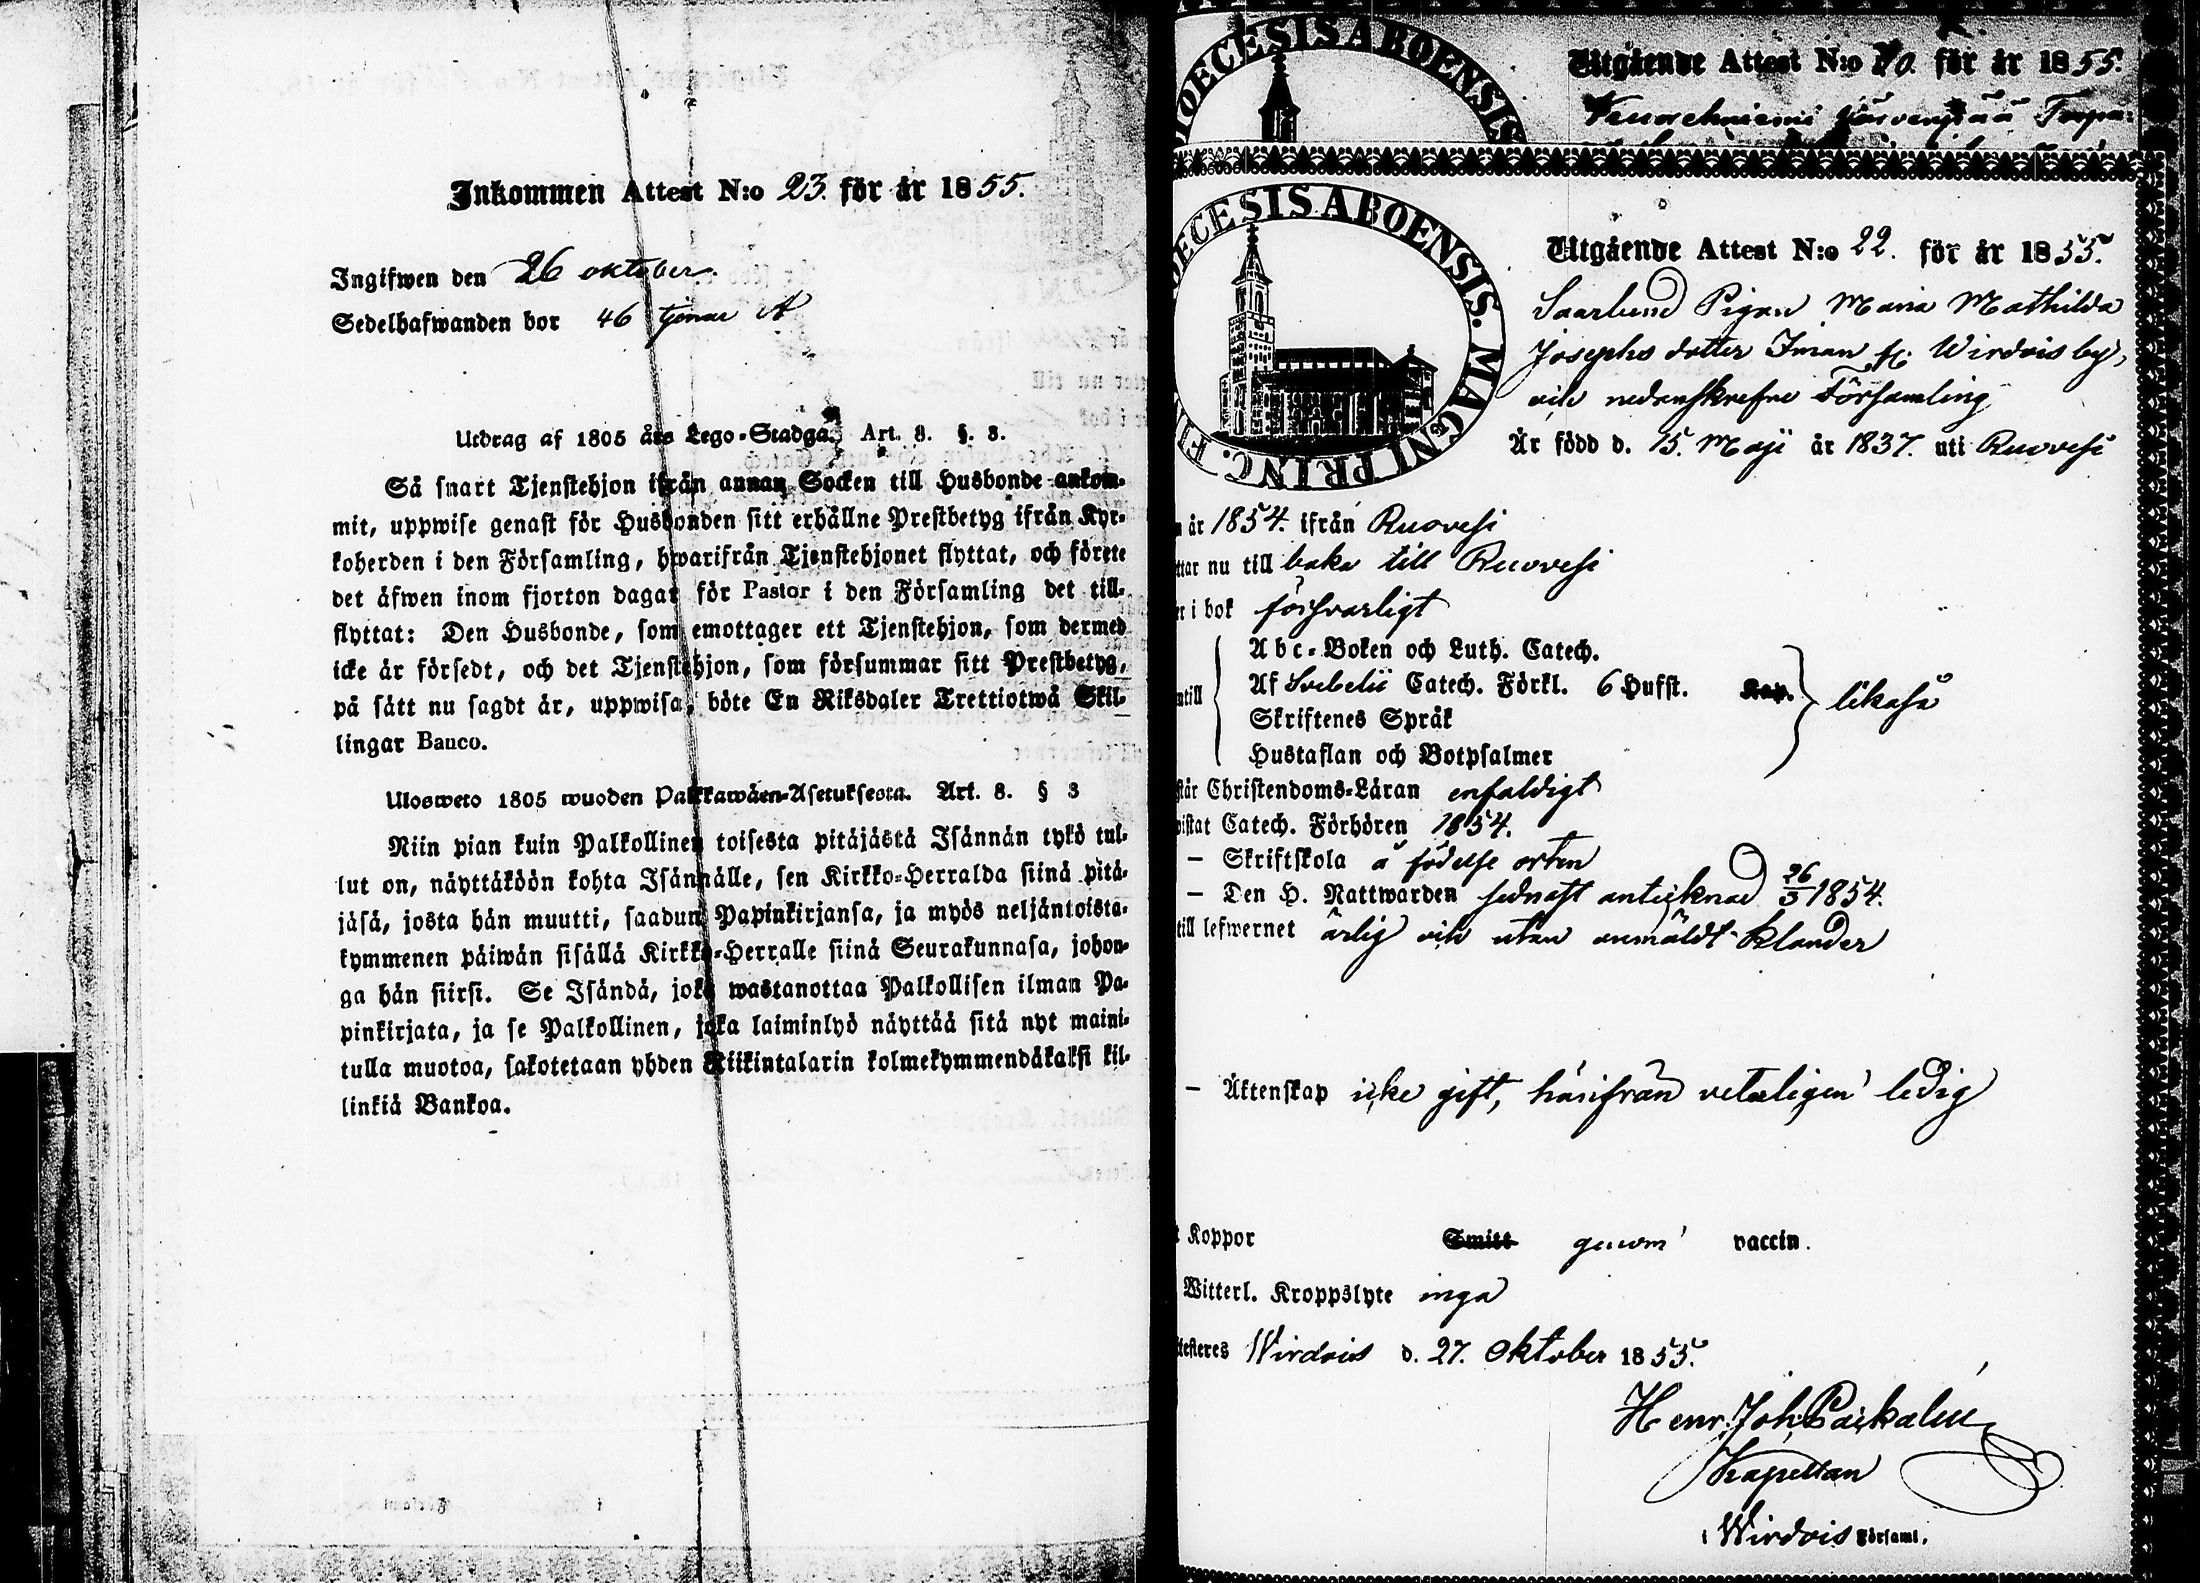 Inkommen Attest N:o 23. för år 1855.
Ingifwen den 26 oktober.
Sedelhafwanden bor 46 tjenar A
Utdrag af 1805 års Lego-Stadga, Art. 8. §. 3.
Så snart Tjenstehjon ifrån annan Socken till Husbonde ankom-
mit, uppwise genast för Husbonden sitt erhållne Prestbetyg ifrån Kyr-
koherden i den Församling, hwarifrån Tjenstehjonet flyttat, och förete
det äfwen inom fjorton dagar för Pastor i den Församling det till-
flyttat: Den Husbonde, som emottager ett Tjenstehjon, som dermed
icke är försedt, och det Tjenstehjon, som försummar sitt Prestbetyg,
på sätt nu sagdt är, uppwisa, böte En Riksdaler Trettiotwå Skil-
lingar Banco.
Ulosweto 1805 wuoden Palkkawäen-Asetuksesta. Art. 8. § 3
Niin pian kuin Palkollinen toisesta pitäjästä Isännän tykö tul-
lut on, näyttäköön kohta Isännälle, sen Kirkko-Herralda siinä pitä-
jäsä, josta hän muutti, saadun Papinkirjansa, ja myös neljäntoista-
kymmenen päiwän sisällä Kirkko-Herralle siinä Seurakunnasa, johon-
ga hän siirsi. Se Isändä, joka wastanottaa Palkollisen ilman Pa-
pinkirjata, ja se Palkollinen, joka laiminlyö näyttää sitä nyt maini-
tulla muotoa, sakotetaan yhden Riikintalarin kolmekymmendäkaksi kil-
linkiä Bankoa.
DIOECESIS ABOENSIS
Utgående Attest N:o 20. för år 1855.
DIOECESIS ABOENSIS. MAGNI PRINC. FIN
Utgående Attest N:o 22. för år 1855.
Pigan Maria Mathilda
Josephs dotter Wirdois by,
och nedanskrefne Församling
Är född d. 15. Maji år 1837. uti Ruovesi
år 1854. ifrån Ruovesi
ttar nu till baka till Ruovesi
r i bok försvarligt
Abc-Boken och Luth. Catech.
ntill Af Svebelii Catech. Förkl. 6 Hufst. Kap. likaså
Skriftenes Språk
Hustaflan och Botpsalmer
står Christendoms-Läran enfaldigt
vistat Catech. Förhören 1854.
— Skriftskola å födelse orten
— Den H. Nattwarden sednast antecknad 26/3 1854.
till lefwernet ärlig och utan anmäldt klander
— Äktenskap icke gift, härifrån veterligen ledig
t Koppor Smitt genom vaccin.
Witterl. Kroppslyte inga
ttesteres Wirdois d. 27. Oktober 1855.
Henr. Joh.
Kapellan
i Wirdois Församl.